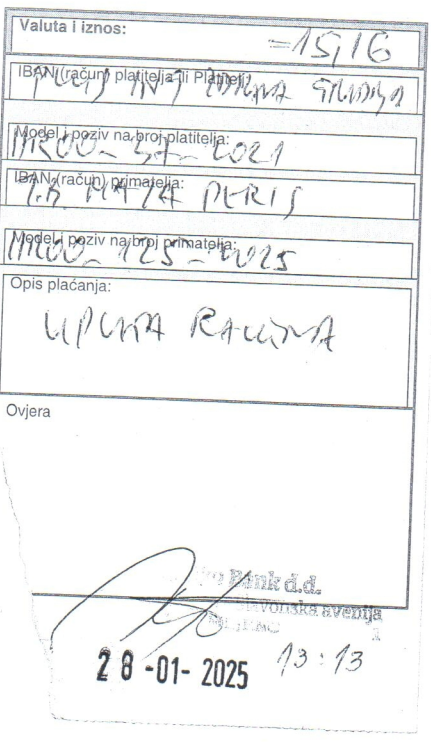 Valuta i iznos:
=15,16
IBAN (račun) platitelja ili Platitelj:
Model i poziv na broj platitelja:
HR00-57-2021
IBAN (račun) primatelja:
MAJA PERIS
Model i poziv na broj primatelja:
HR00-125-2025
Opis plaćanja:
UPLATA RAČUNA
Ovjera
Bank d.d.
Slavonska avenija
28-01-2025
13:13